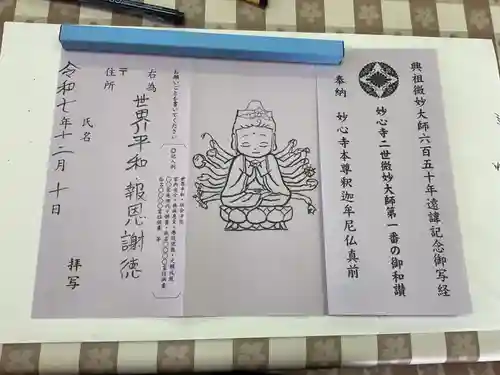 興祖微妙大師六百五十年遠諱記念御写経
妙心寺二世微妙大師第一番の御和讃
奉納 妙心寺本尊釈迦牟尼仏真前
お願いごとを書いてください
〇記入例
右為 世界平和 報恩謝徳
〒
住所
氏名
令和七年十二月十日 拝写